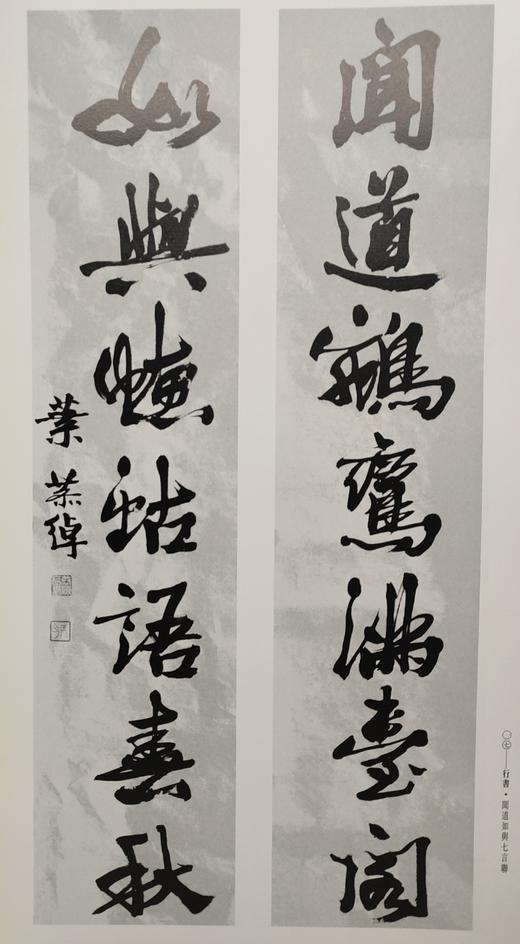 聞道鵷鸞滿臺閣
如與蟪蛄語春秋
葉恭綽
〇㊆——行書・聞道如與七言聯